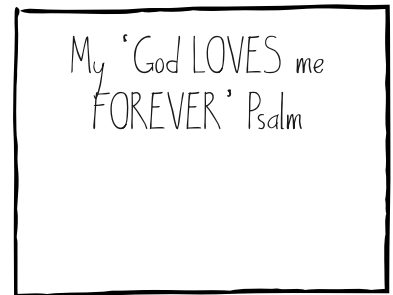 My 'God LOVES me
FOREVER' Psalm